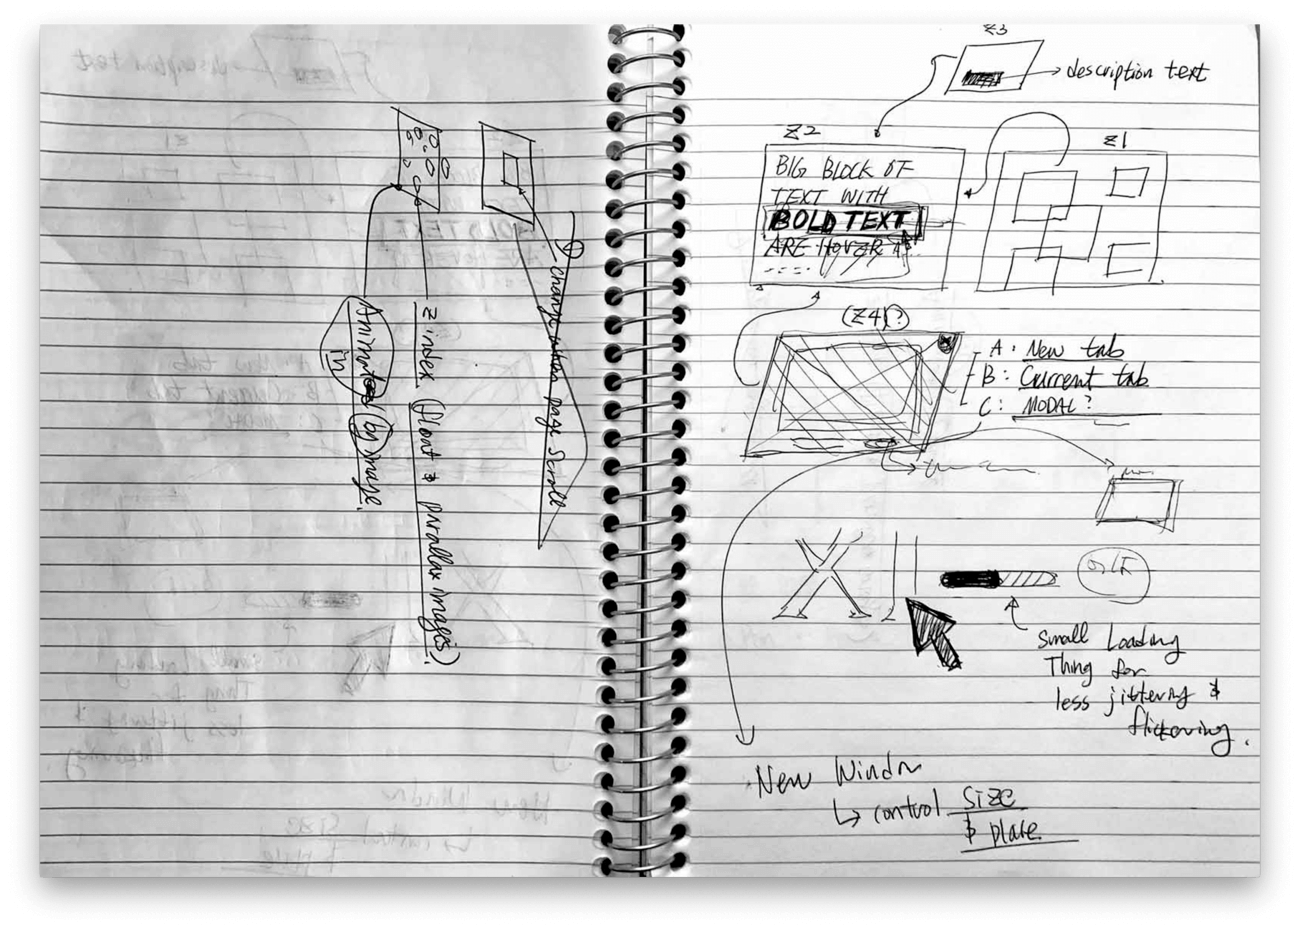 change when page scroll
z index (float & parallax images).
Animated (by image.
in
z3
description text
z2
BIG BLOCK OF
TEXT WITH
BOLD TEXT
ARE HOVER A...
z1
(Z4)?
A. New tab
B: Current tab
C: MODAL?
Small Loading
Thing for
less jittering &
flickering.
New Window
↳ control size
& place.